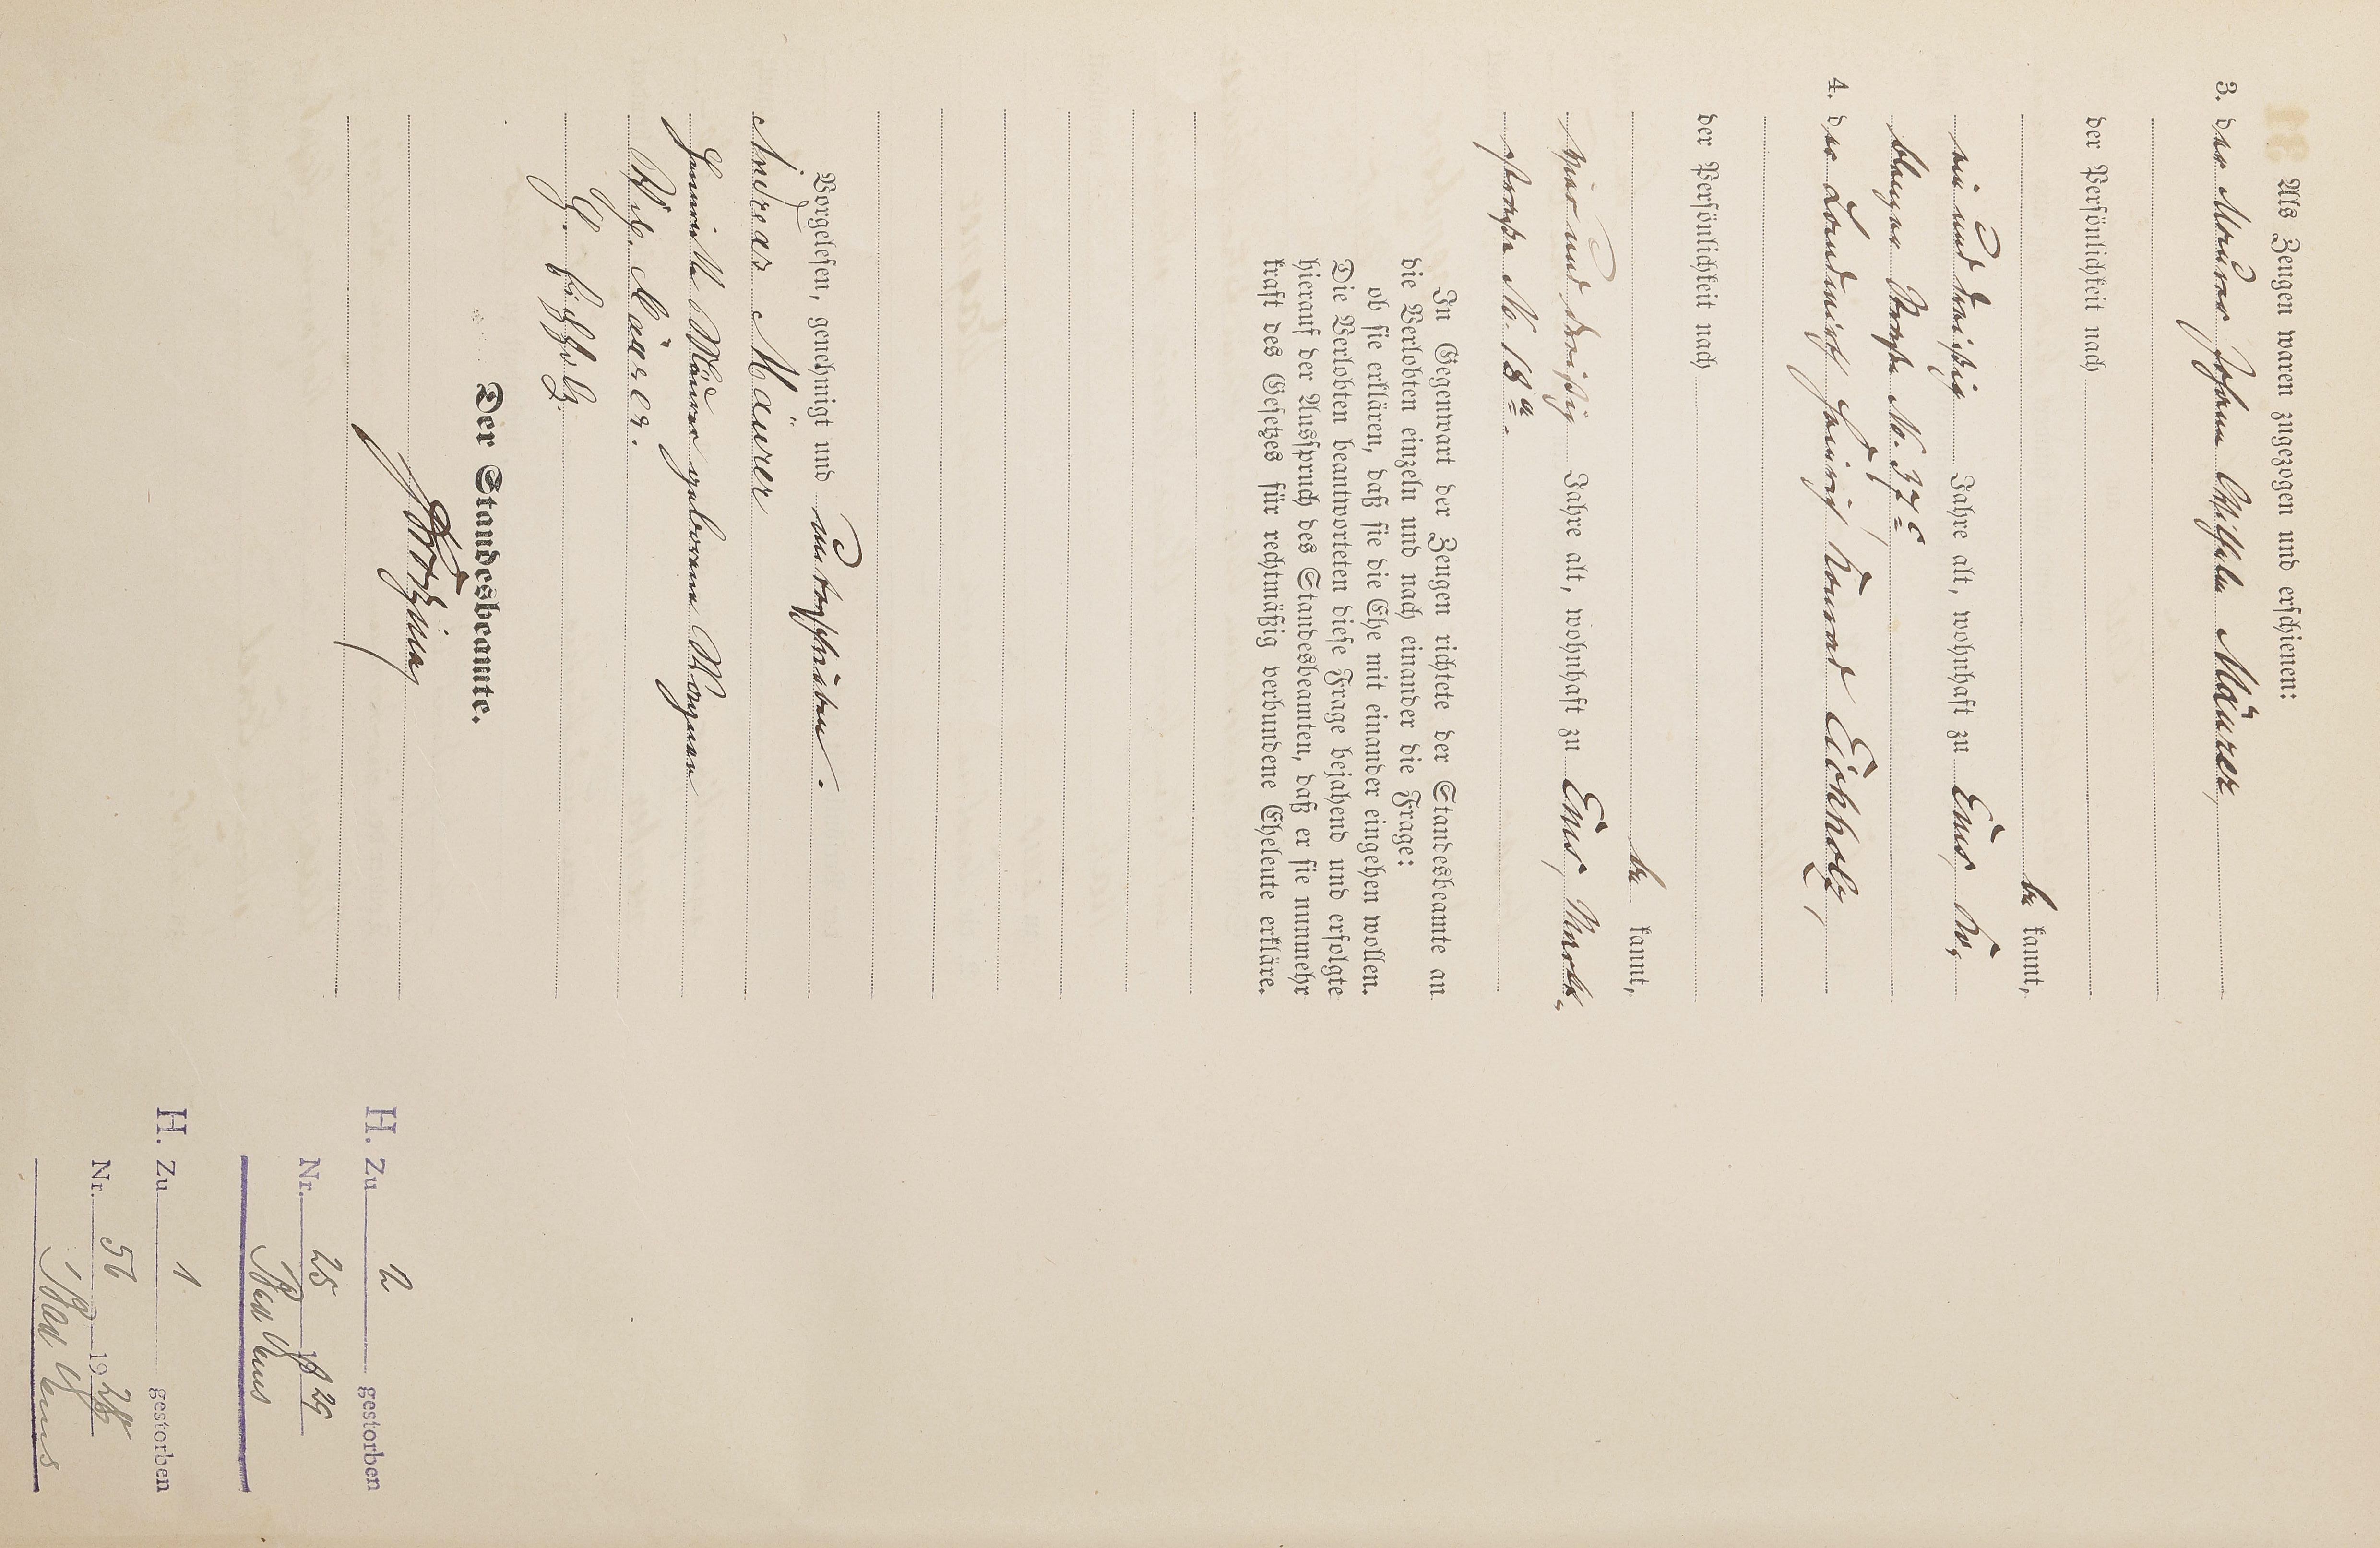 Als Zeugen waren zugezogen und erschienen:
3. der Maurer Johann Wilhelm Mäurer,
der Persönlichkeit nach
be kannt,
ein und dreißig Jahre alt, wohnhaft zu Ems, Ko,
blenzer Straße No. 37c
4. der Landwirth Heinrich Konrad Eickholz,
der Persönlichkeit nach
be kannt,
vier und dreißig Jahre alt, wohnhaft zu Ems, Markt-
straße No. 18a.
In Gegenwart der Zeugen richtete der Standesbeamte an
die Verlobten einzeln und nach einander die Frage:
ob sie erklären, daß sie die Ehe mit einander eingehen wollen.
Die Verlobten beantworteten diese Frage bejahend und erfolgte
hierauf der Ausspruch des Standesbeamten, daß er sie nunmehr
kraft des Gesetzes für rechtmäßig verbundene Eheleute erkläre.
Vorgelesen, genehmigt und unterschrieben.
Andreas Mäurer
Mäurer geborene Wagner
Wilh. Mäurer.
Der Standesbeamte.
H. Zu 2 gestorben
Nr. 25 1929
Bad Ems
H. Zu 1 gestorben
Nr. 56 1928
Bad Ems